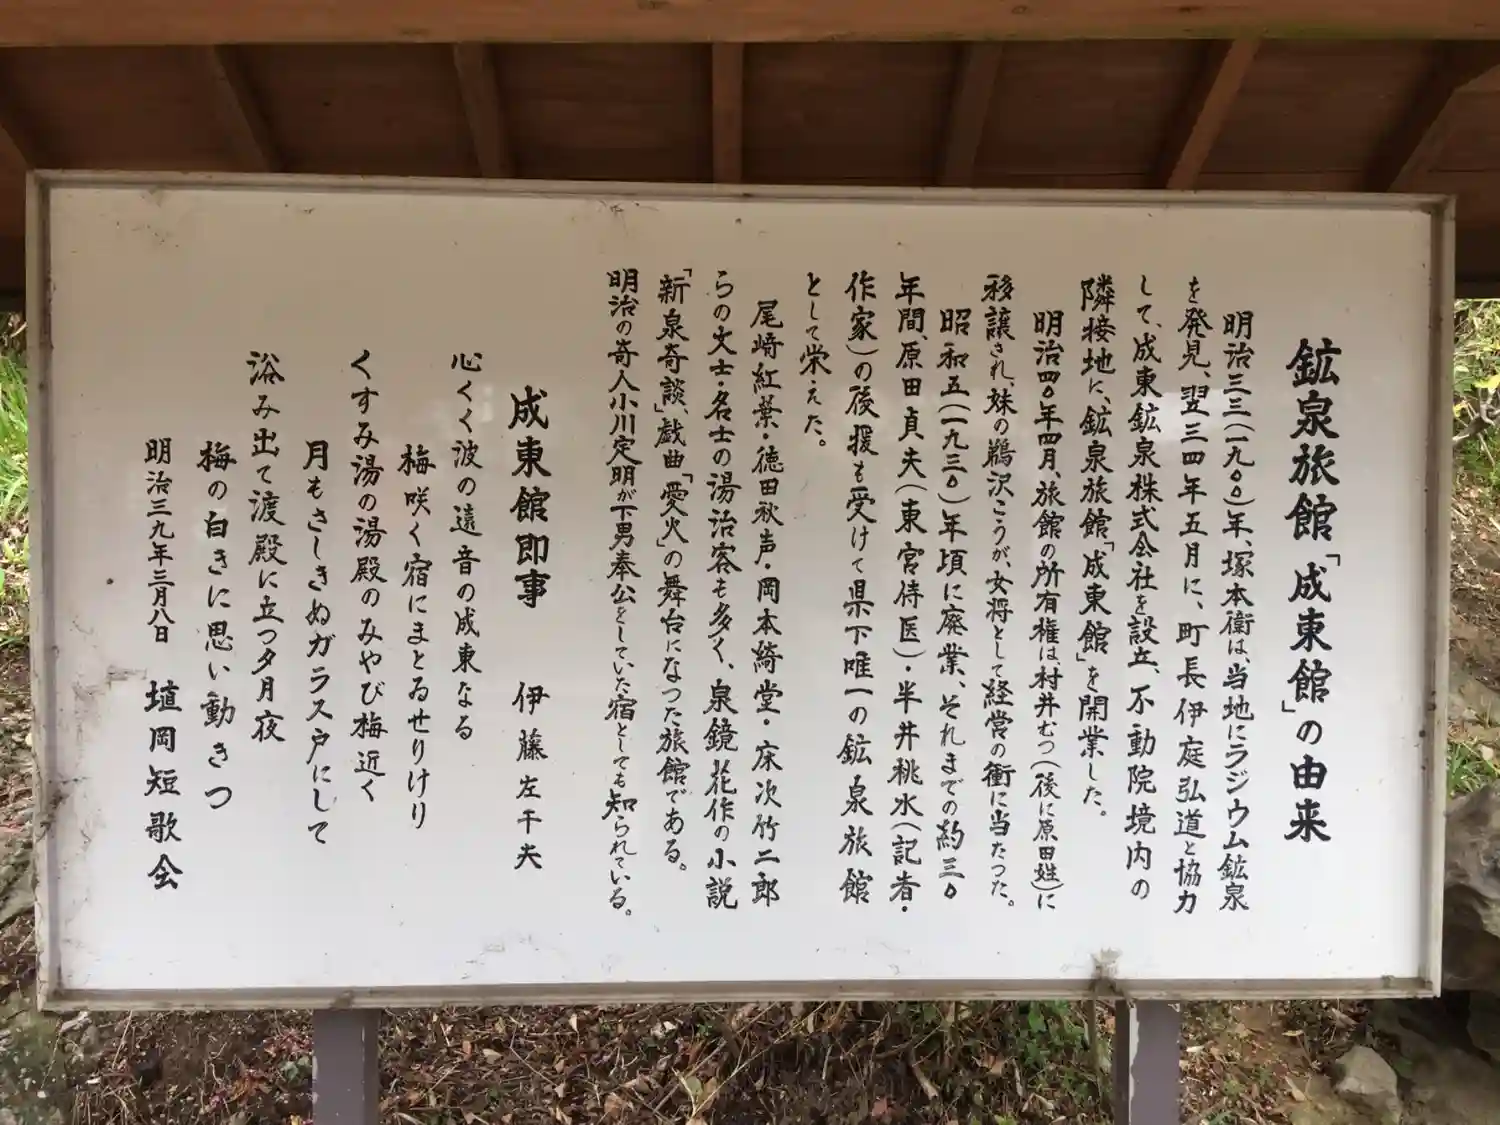 鉱泉旅館「成東館」の由来
明治三三(一九〇〇)年、塚本衛は、当地にラジウム鉱泉
を発見、翌三四年五月に、町長伊庭弘道と協力
して、成東鉱泉株式会社を設立、不動院境内の
隣接地に、鉱泉旅館「成東館」を開業した。
明治四〇年四月、旅館の所有権は村井むつ(後に原田姓)に
移譲され、妹の鵜沢こうが、女将として経営の衝に当たった。
昭和五(一九三〇)年頃に廃業、それまでの約三〇
年間、原田貞夫(東宮侍医)・半井桃水(記者・
作家)の後援も受けて県下唯一の鉱泉旅館
として栄えた。
尾崎紅葉・徳田秋声・岡本綺堂・床次竹二郎
らの文士・名士の湯治客も多く、泉鏡花作の小説
「新泉奇談」、戯曲「愛火」の舞台になった旅館である。
明治の奇人小川定明が下男奉公をしていた宿としても知られている。
成東館即事　伊藤左千夫
心くく波の遠音の成東なる
梅咲く宿にまとゐせりけり
くすみ湯の湯殿のみやび梅近く
月もさしきぬガラス戸にして
浴み出て渡殿に立つ夕月夜
梅の白きに思い動きつ
明治三九年三月八日　埴岡短歌会